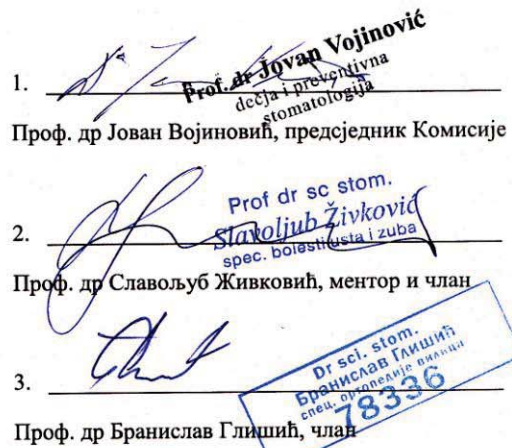 Prof. dr Jovan Vojinović
dečja i preventivna
stomatologija
1.
Проф. др Јован Војиновић, предсједник Комисије
Prof dr sc stom.
Slavoljub Živković
spec. bolesti usta i zuba
2.
Проф. др Славољуб Живковић, ментор и члан
Dr sci. stom.
Бранислав Глишић
спец. ортопедије вилица
78336
3.
Проф. др Бранислав Глишић, члан